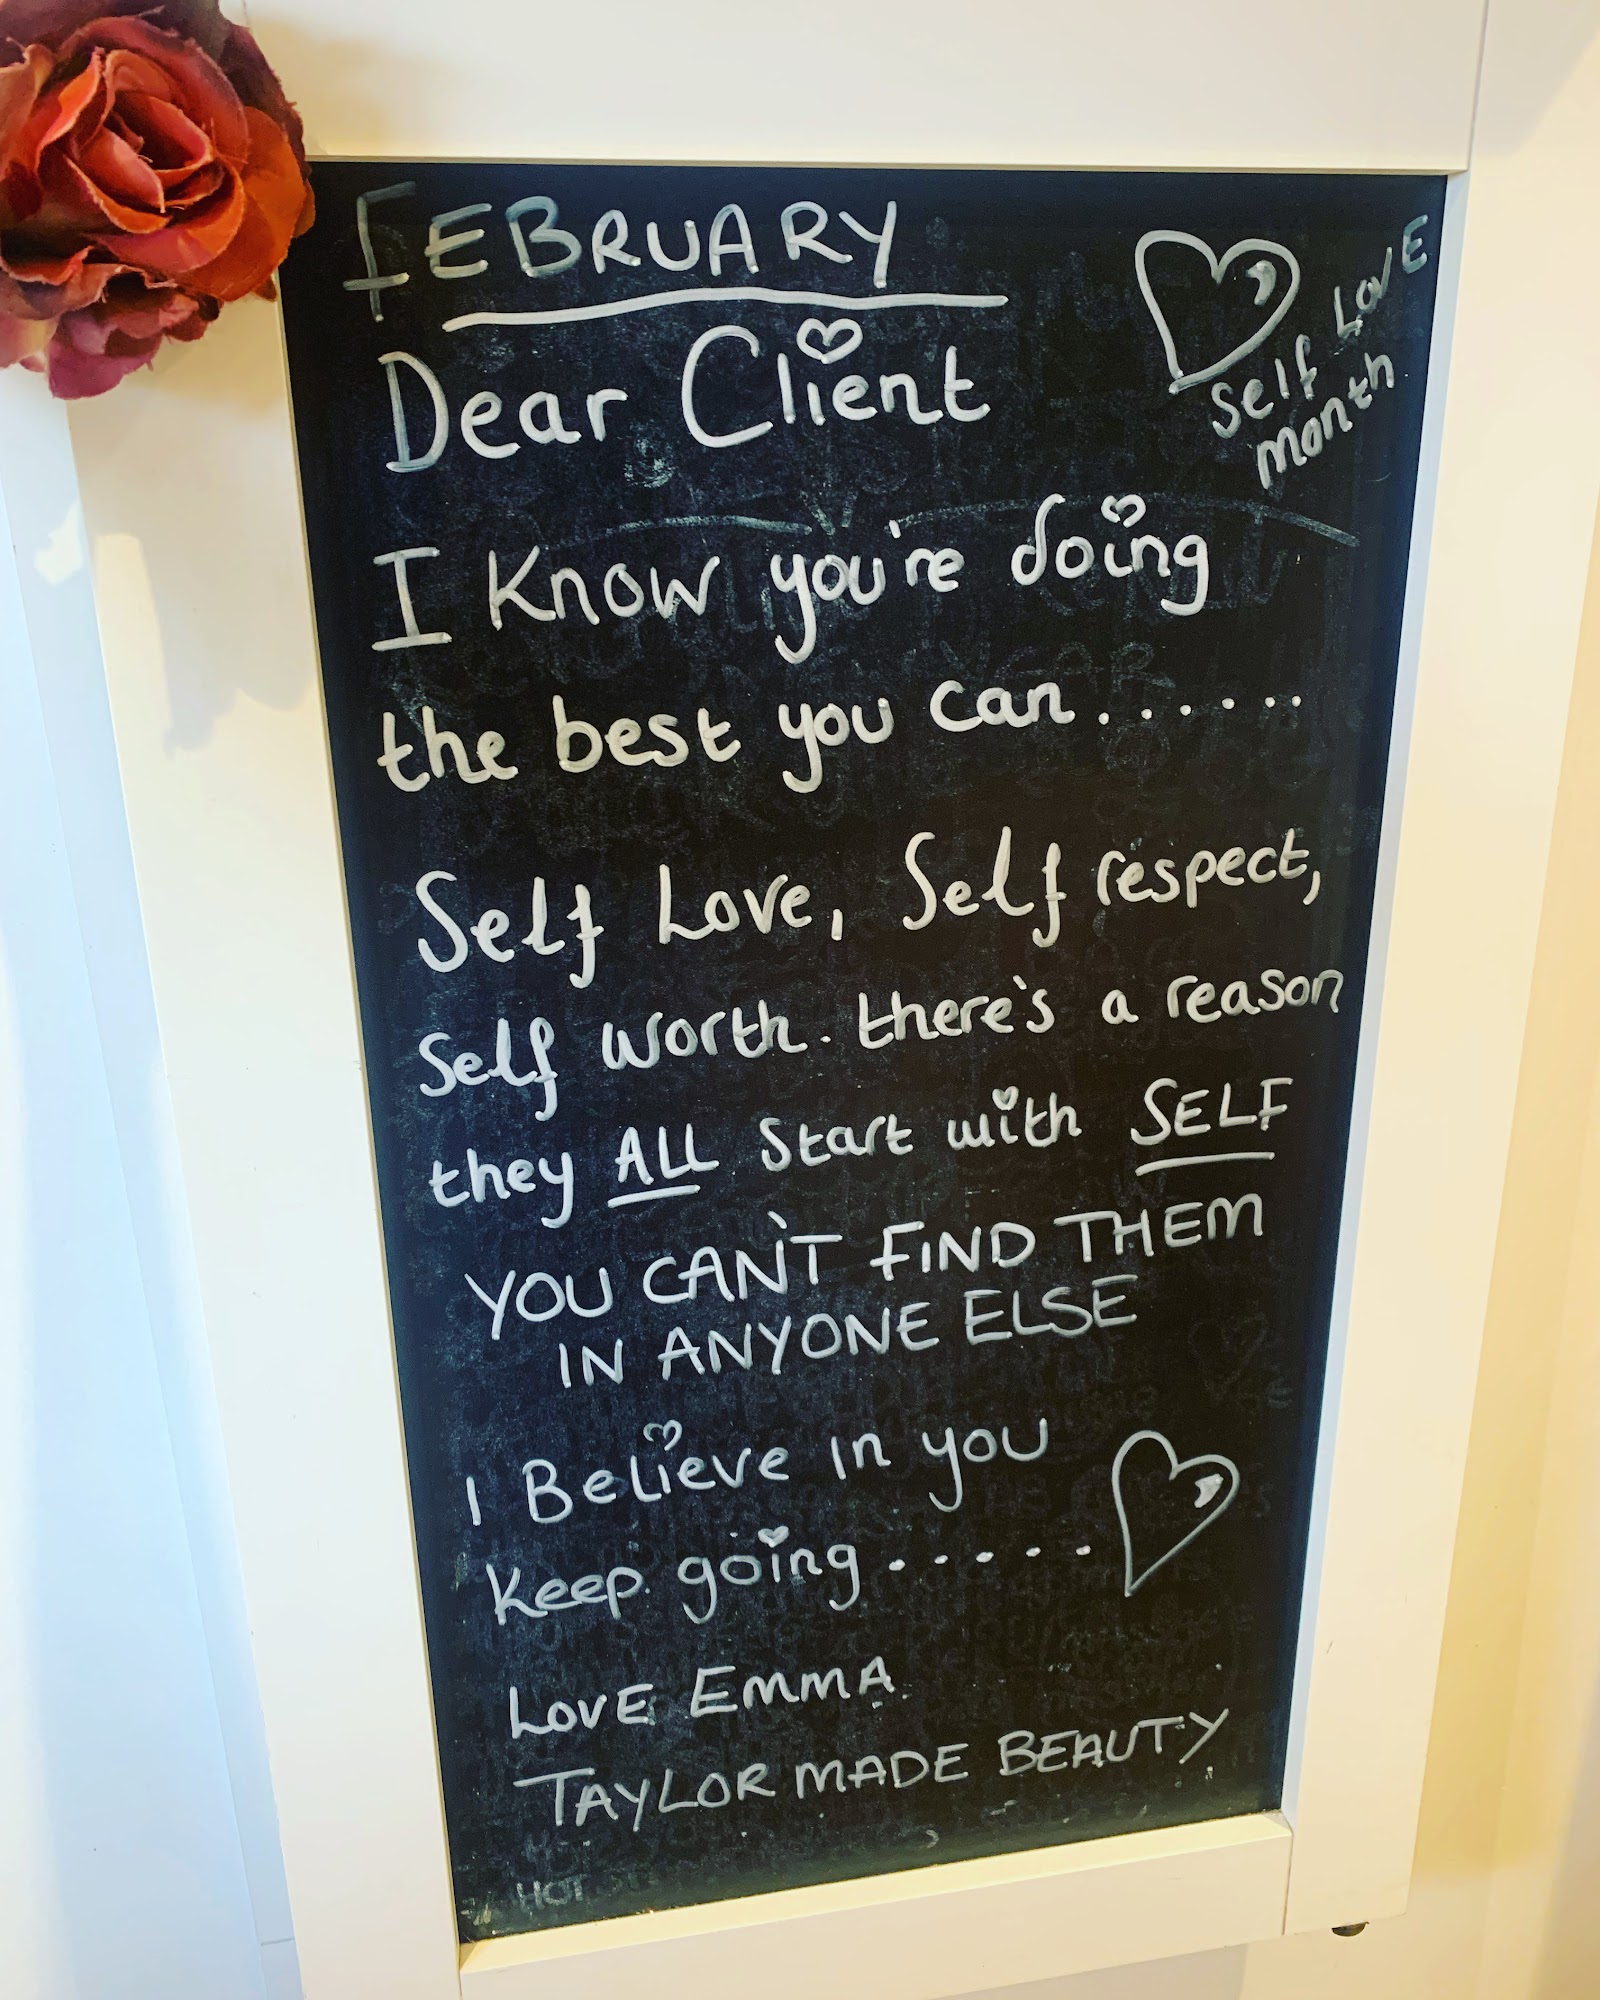 FEBRUARY
Self Love
Month
Dear Client
I Know you're doing
the best you can......
Self Love, Self respect,
Self worth. there's a reason
they ALL Start with SELF
YOU CAN'T FIND THEM
IN ANYONE ELSE
I Believe in you
Keep going.....
LOVE EMMA
TAYLOR MADE BEAUTY
HOT